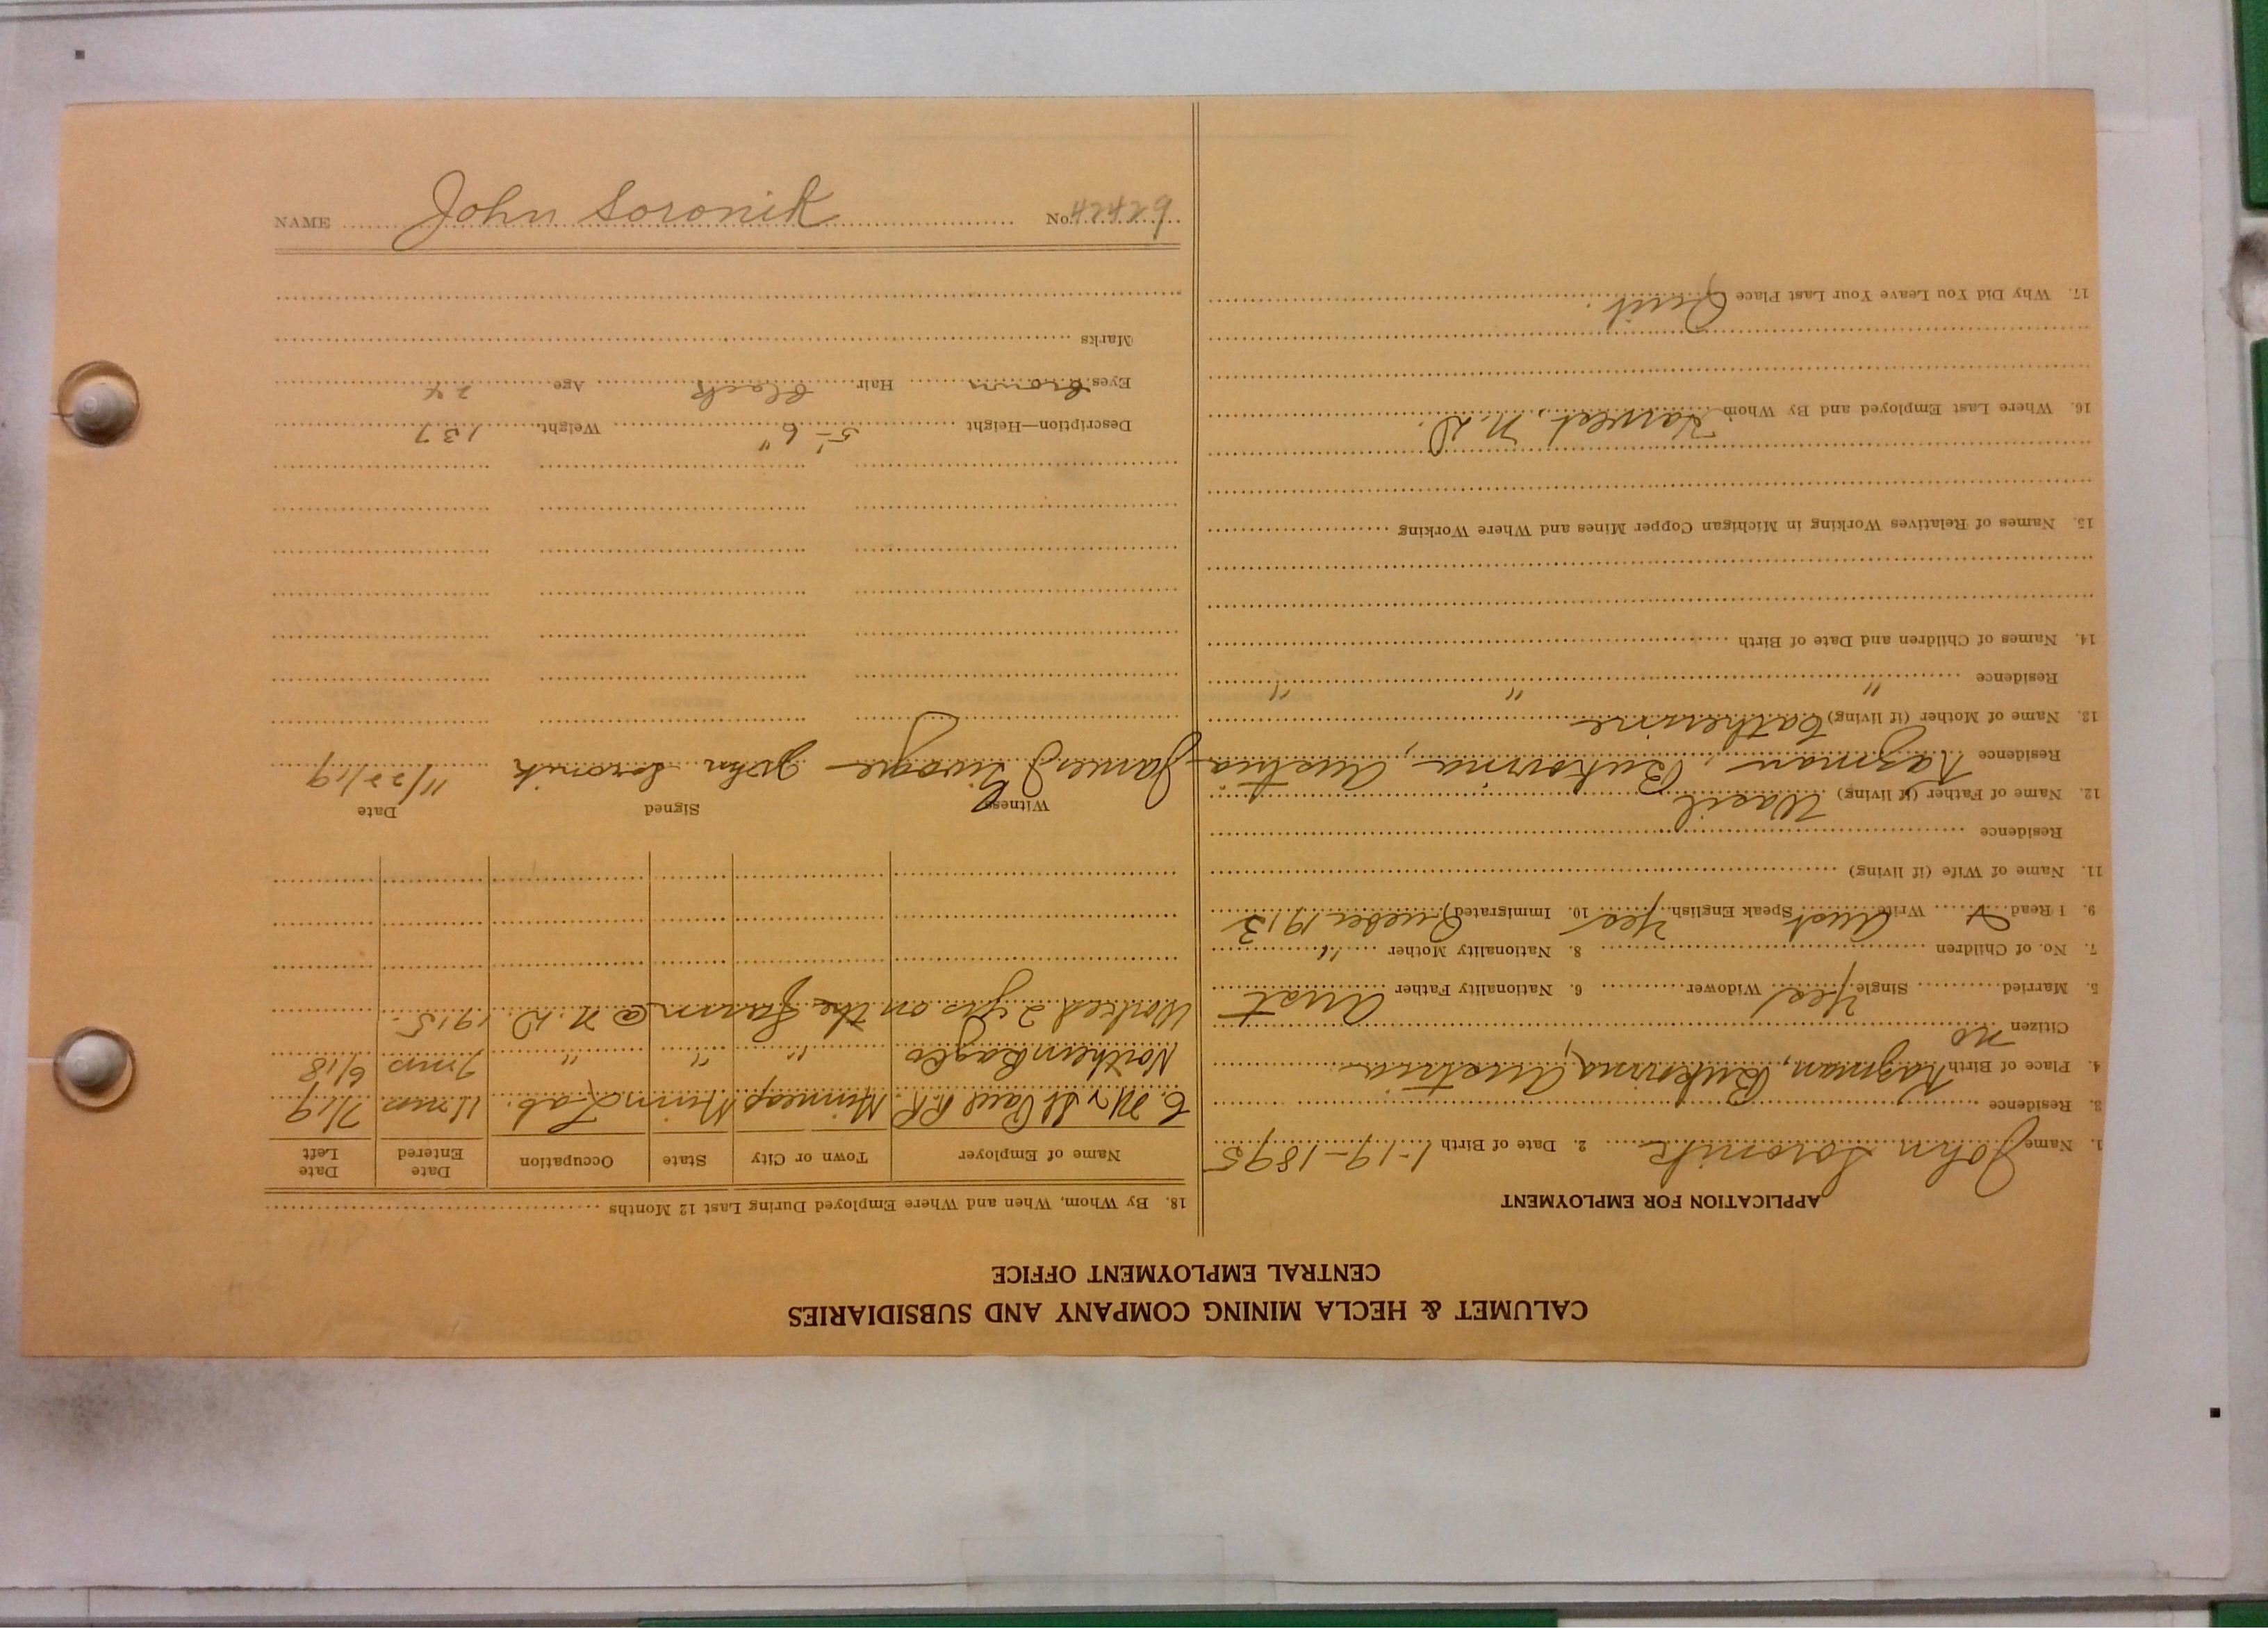 CALUMET & HECLA MINING COMPANY AND SUBSIDIARIES
CENTRAL EMPLOYMENT OFFICE
APPLICATION FOR EMPLOYMENT
1. Name John Soronik 2. Date of Birth 1-19-1895
3. Residence
4. Place of Birth Kazman, Bukovina, Austria
Citizen no
5. Married Single Yes Widower 6. Nationality Father Aust
7. No. of Children 8. Nationality Mother "
9. I Read & Write Aust Speak English Yes 10. Immigrated Quebec 1913
11. Name of Wife (if living)
Residence
12. Name of Father (if living) Wasil
Residence Kazman, Bukovina, Austria
13. Name of Mother (if living) Catherine
Residence " " "
14. Names of Children and Date of Birth
15. Names of Relatives Working in Michigan Copper Mines and Where Working
16. Where Last Employed and By Whom Harvest, N.D.
17. Why Did You Leave Your Last Place Quit.
18. By Whom, When and Where Employed During Last 12 Months
Name of Employer Town or City State Occupation Date Entered Date Left
C. M & St Paul R.R. Minneap Minn Lab. 11 mos 7/19
Northern Bag Co " " " 7 mos 6/18
Worked 2 yrs on the farm @ N.D 1915
Witness Signed Date
James J. John Soronik 11/22/19
Description—Height 5'-6" Weight 137
Eyes brown Hair black Age 24
Marks
NAME John Soronik No. 42429